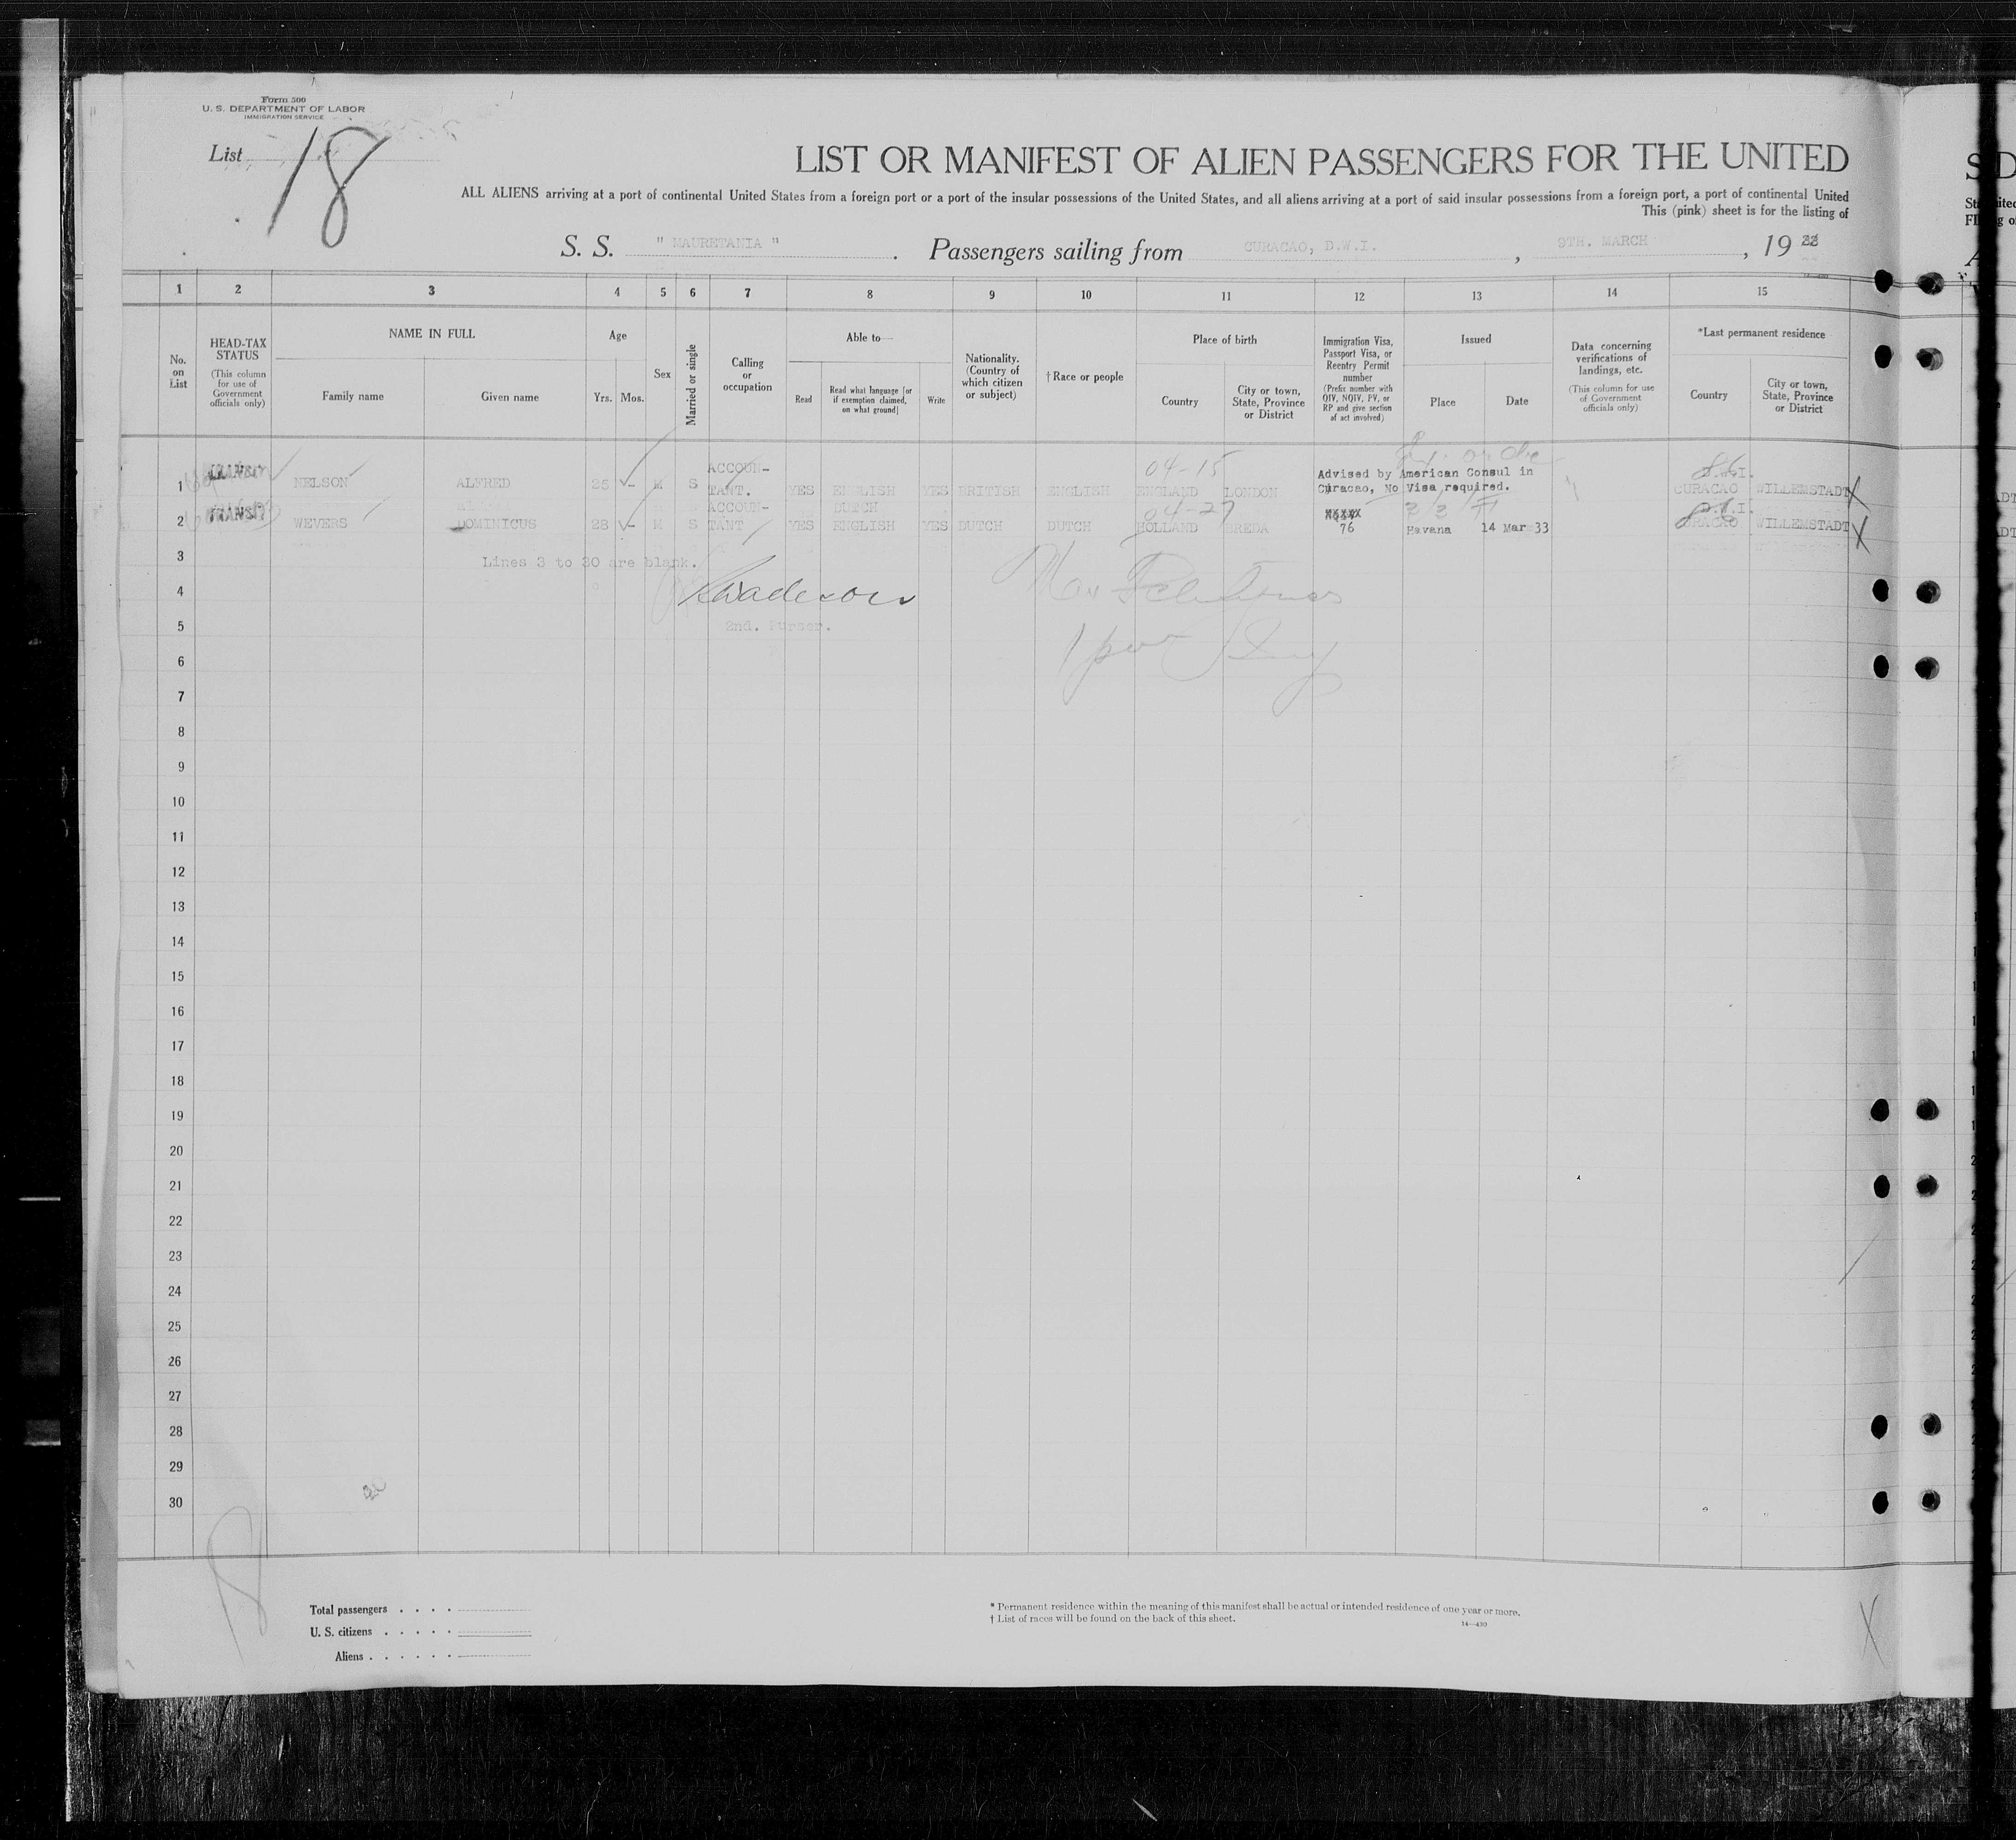 Form 500
U. S. DEPARTMENT OF LABOR
IMMIGRATION SERVICE
List 18
LIST OR MANIFEST OF ALIEN PASSENGERS FOR THE UNITED
ALL ALIENS arriving at a port of continental United States from a foreign port or a port of the insular possessions of the United States, and all aliens arriving at a port of said insular possessions from a foreign port, a port of continental United
This (pink) sheet is for the listing of
S. S. " MAURETANIA " . Passengers sailing from CURACAO, D.W.I. , 9TH. MARCH , 19
1 2 3 4 5 6 7 8 9 10 11 12 13 14 15
No. on List
HEAD-TAX STATUS
(This column for use of Government officials only)
NAME IN FULL
Family name Given name
Age
Yrs. Mos.
Sex
Married or single
Calling or occupation
Able to—
Read
Read what language [or if exemption claimed, on what ground]
Write
Nationality. (Country of which citizen or subject)
† Race or people
Place of birth
Country
City or town, State, Province or District
Immigration Visa, Passport Visa, or Reentry Permit number
(Prefix number with QIV, NQIV, PV, or RP and give section of act involved)
Issued
Place Date
Data concerning verifications of landings, etc.
(This column for use of Government officials only)
*Last permanent residence
Country
City or town, State, Province or District
1 TRANSIT NELSON ALFRED 25 - M S ACCOUN-TANT. YES ENGLISH YES BRITISH ENGLISH 04-15 ENGLAND LONDON Advised by American Consul in Curacao, No Visa required. D.W.I. CURACAO WILLEMSTADT
2 TRANSIT WEVERS DOMINICUS 28 - M S ACCOUN-TANT YES DUTCH ENGLISH YES DUTCH DUTCH 04-27 HOLLAND BREDA 76 Havana 14 Mar 33 D.W.I. CURACAO WILLEMSTADT
3 Lines 3 to 30 are blank.
4
5 2nd. Purser.
6
7
8
9
10
11
12
13
14
15
16
17
18
19
20
21
22
23
24
25
26
27
28
29
30
Total passengers . . . .
U. S. citizens . . . . .
Aliens . . . . . .
* Permanent residence within the meaning of this manifest shall be actual or intended residence of one year or more.
† List of races will be found on the back of this sheet.
14—430